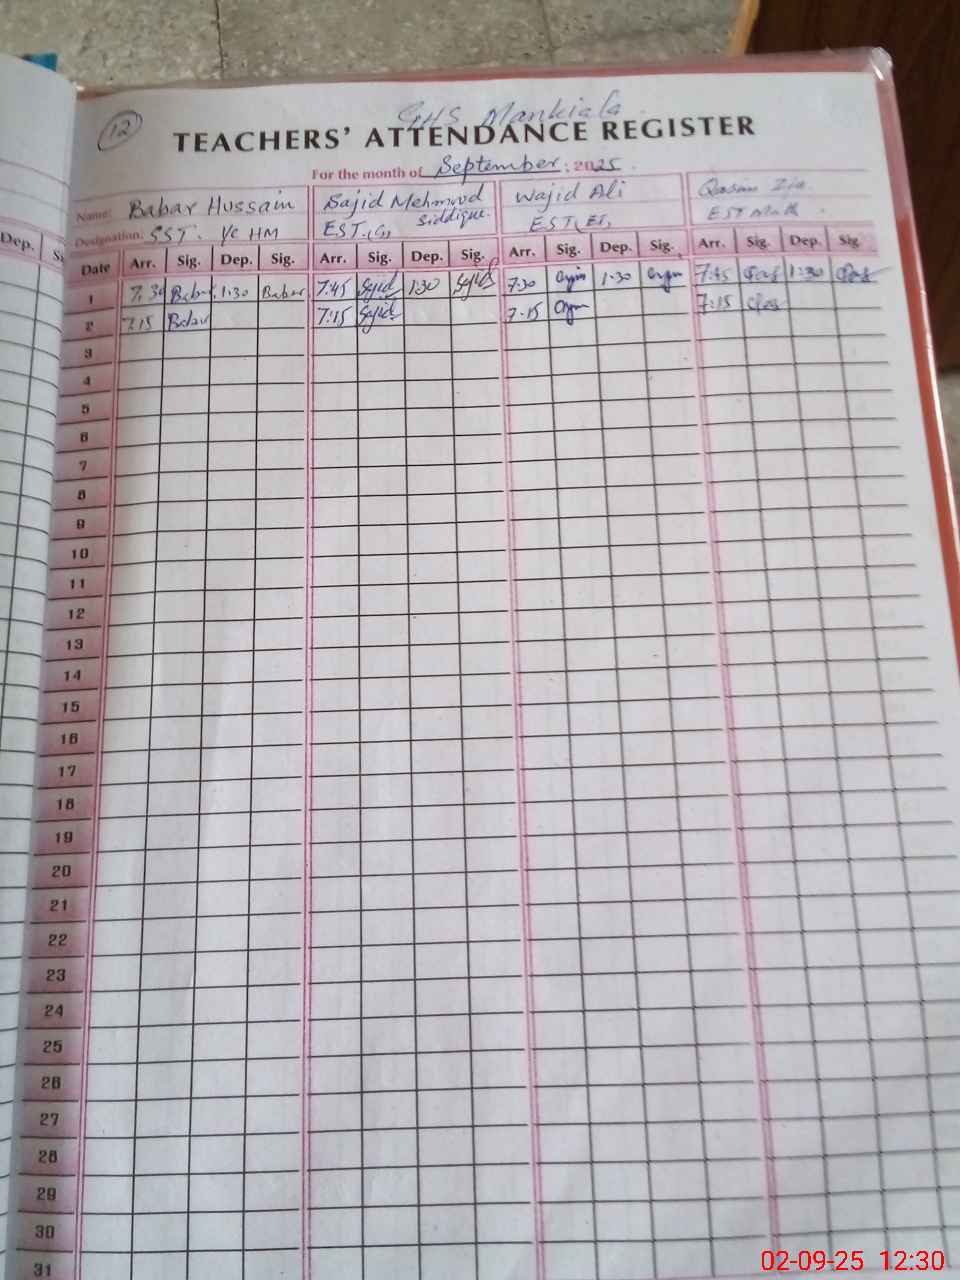 12
GHS Mankiala
TEACHERS' ATTENDANCE REGISTER
For the month of September. 2025.
Name: Babar Hussain Sajid Mehmood Siddique. Wajid Ali Qasim Zia.
Designation: SST. I/C HM EST.(G) EST(ET) EST Math.
Dep.
Date Arr. Sig. Dep. Sig. Arr. Sig. Dep. Sig. Arr. Sig. Dep. Sig. Arr. Sig. Dep. Sig
1 7:30 Babar 1:30 Babar 7:45 Sajid 1:30 Sajid 7:30 1:30 7:45 1:30
2 7:15 Babar 7:15 Sajid 7:15 7:15
3
4
5
6
7
8
9
10
11
12
13
14
15
16
17
18
19
20
21
22
23
24
25
26
27
28
29
30
31
02-09-25 12:30